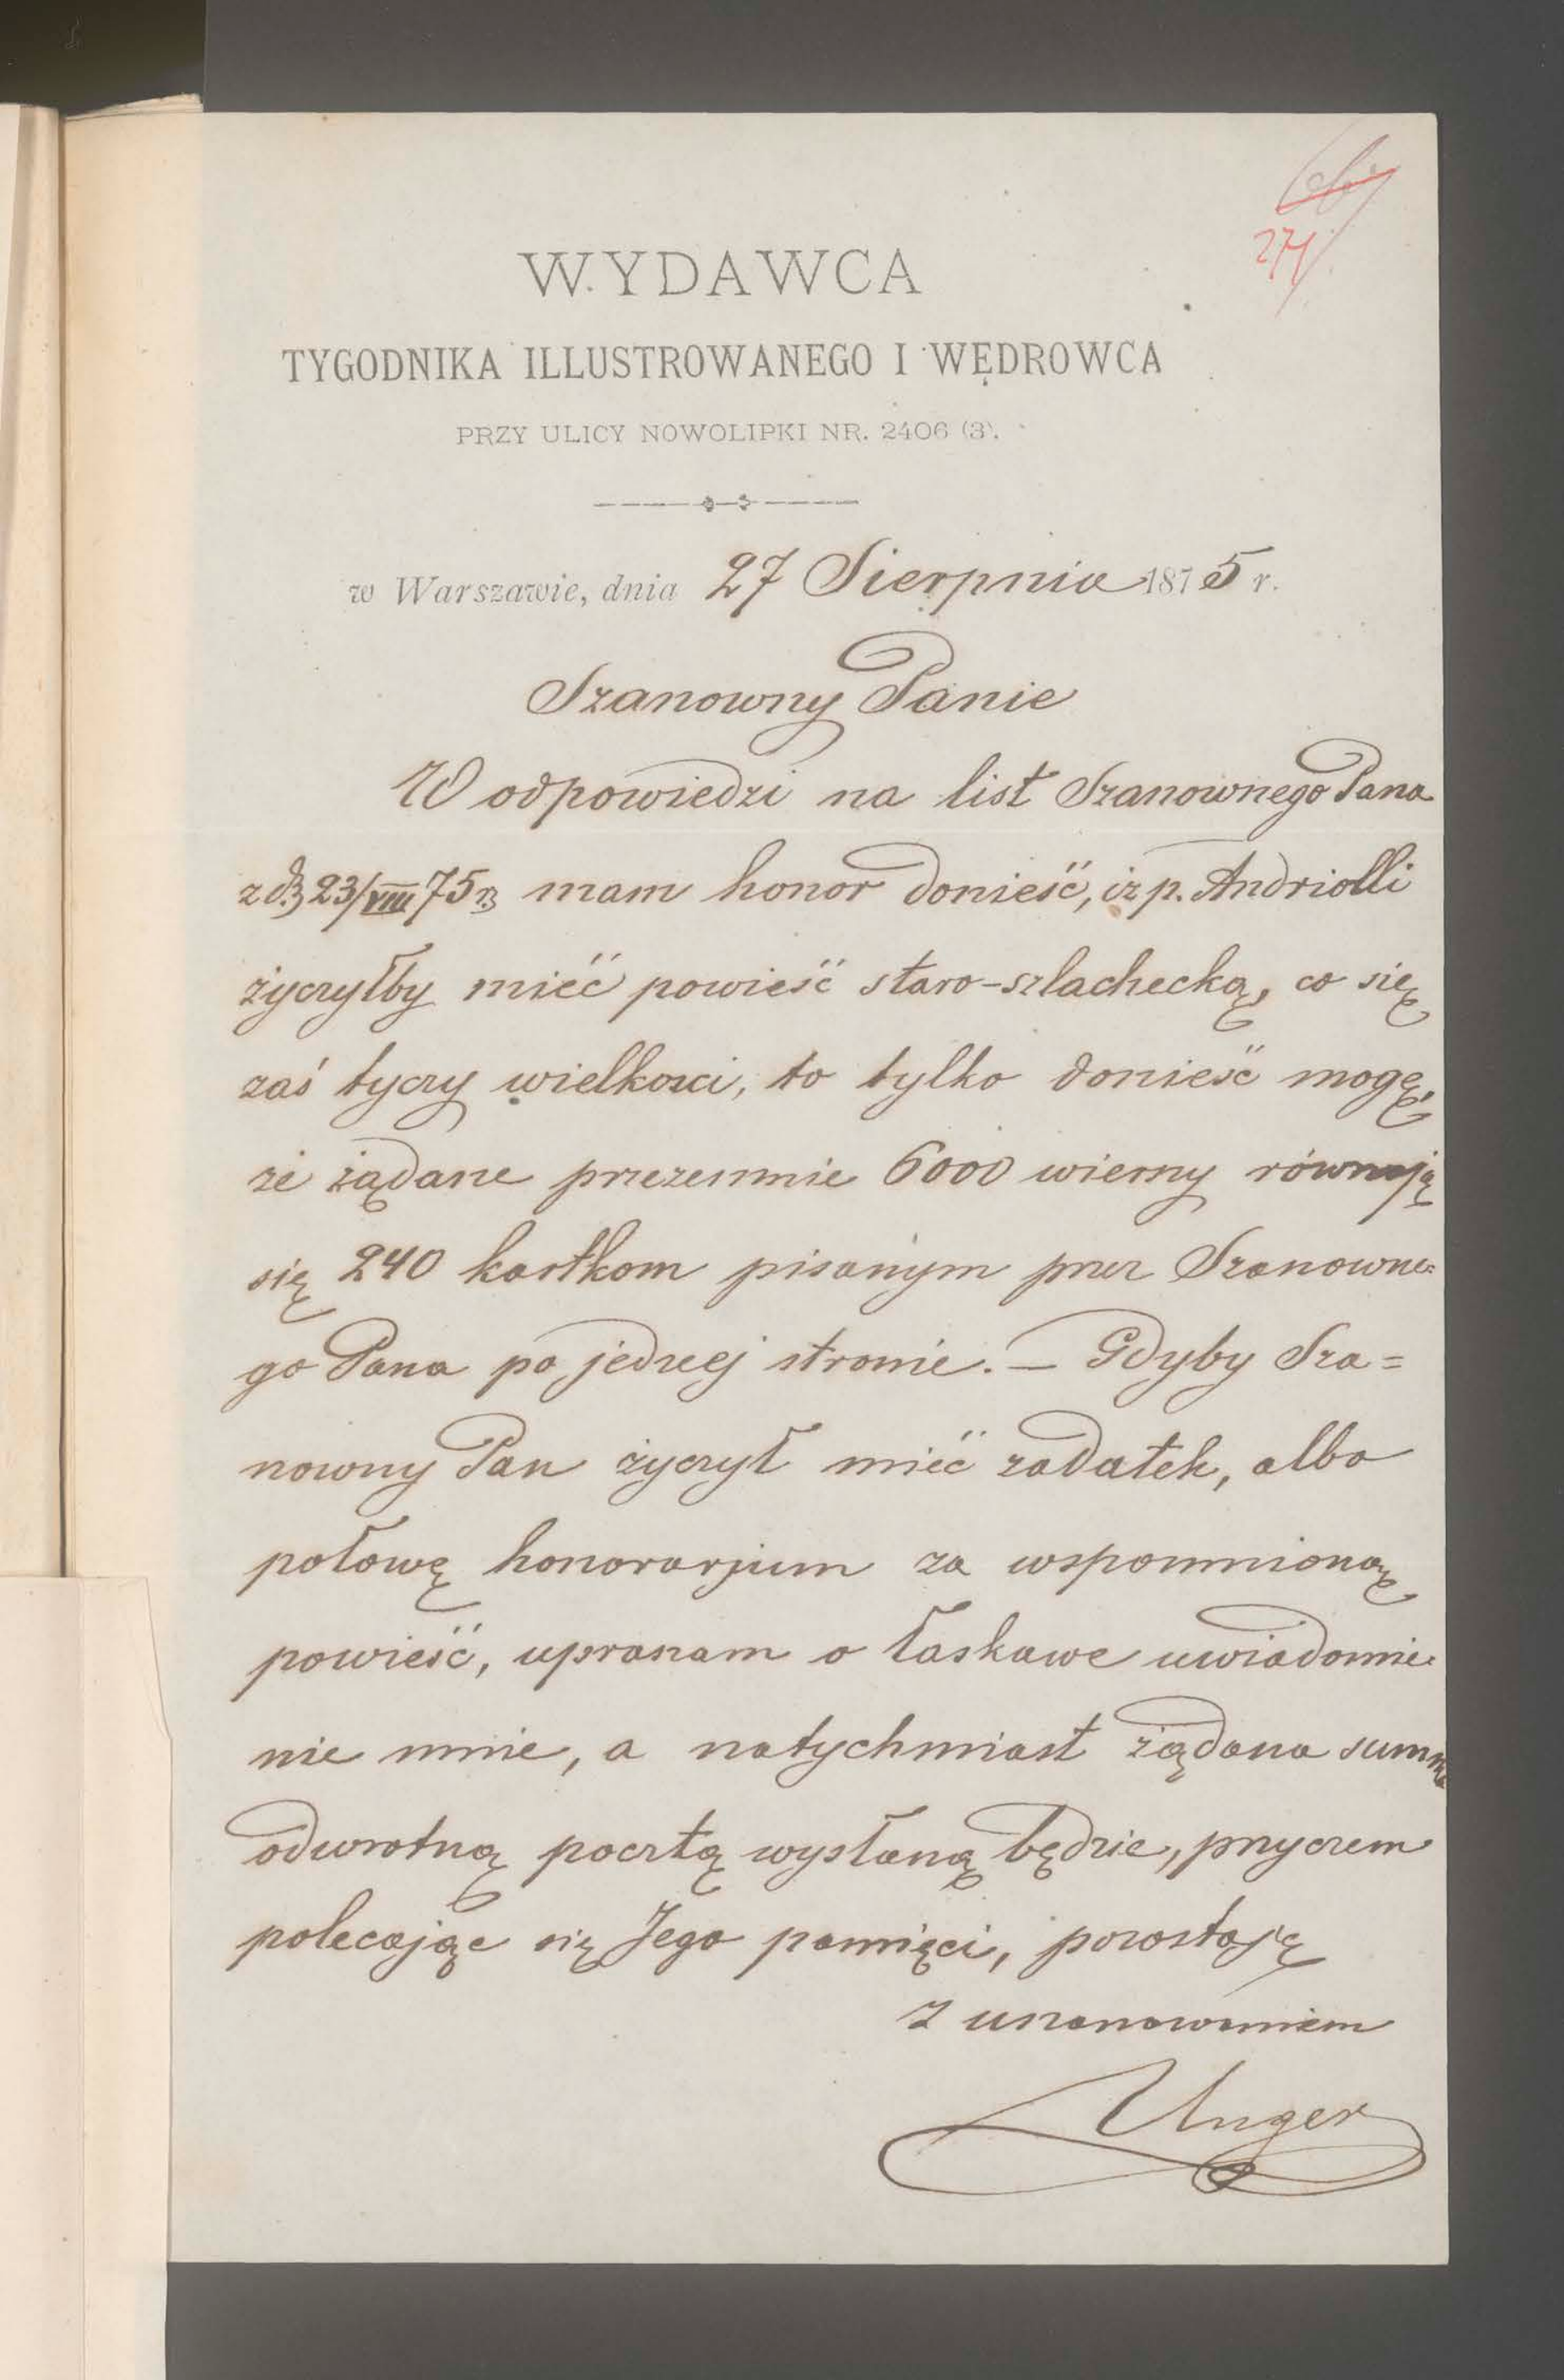 274
WYDAWCA
TYGODNIKA ILLUSTROWANEGO I WĘDROWCA
PRZY ULICY NOWOLIPKI NR. 2406 (3).
w Warszawie, dnia 27 Sierpnia 1875 r.
Szanowny Panie
W odpowiedzi na list Szanownego Pana
z d. 23/VIII 75 r. mam honor donieść, iż p. Andriolli
życzyłby mieć powieść staro-szlachecką, co się
zaś tyczy wielkości, to tylko donieść mogę,
że żądane przezemnie 6000 wierszy równają
się 240 kartkom pisanym przez Szanowne=
go Pana po jednej stronie. – Gdyby Sza=
nowny Pan życzył mieć zadatek, albo
połowę honorarjum za wspomnioną
powieść, upraszam o łaskawe uwiadomie=
nie mnie, a natychmiast żądana summa
odwrotną pocztą wysłaną będzie, przyczem
polecając się Jego pamięci, pozostaję
z uszanowaniem
Unger